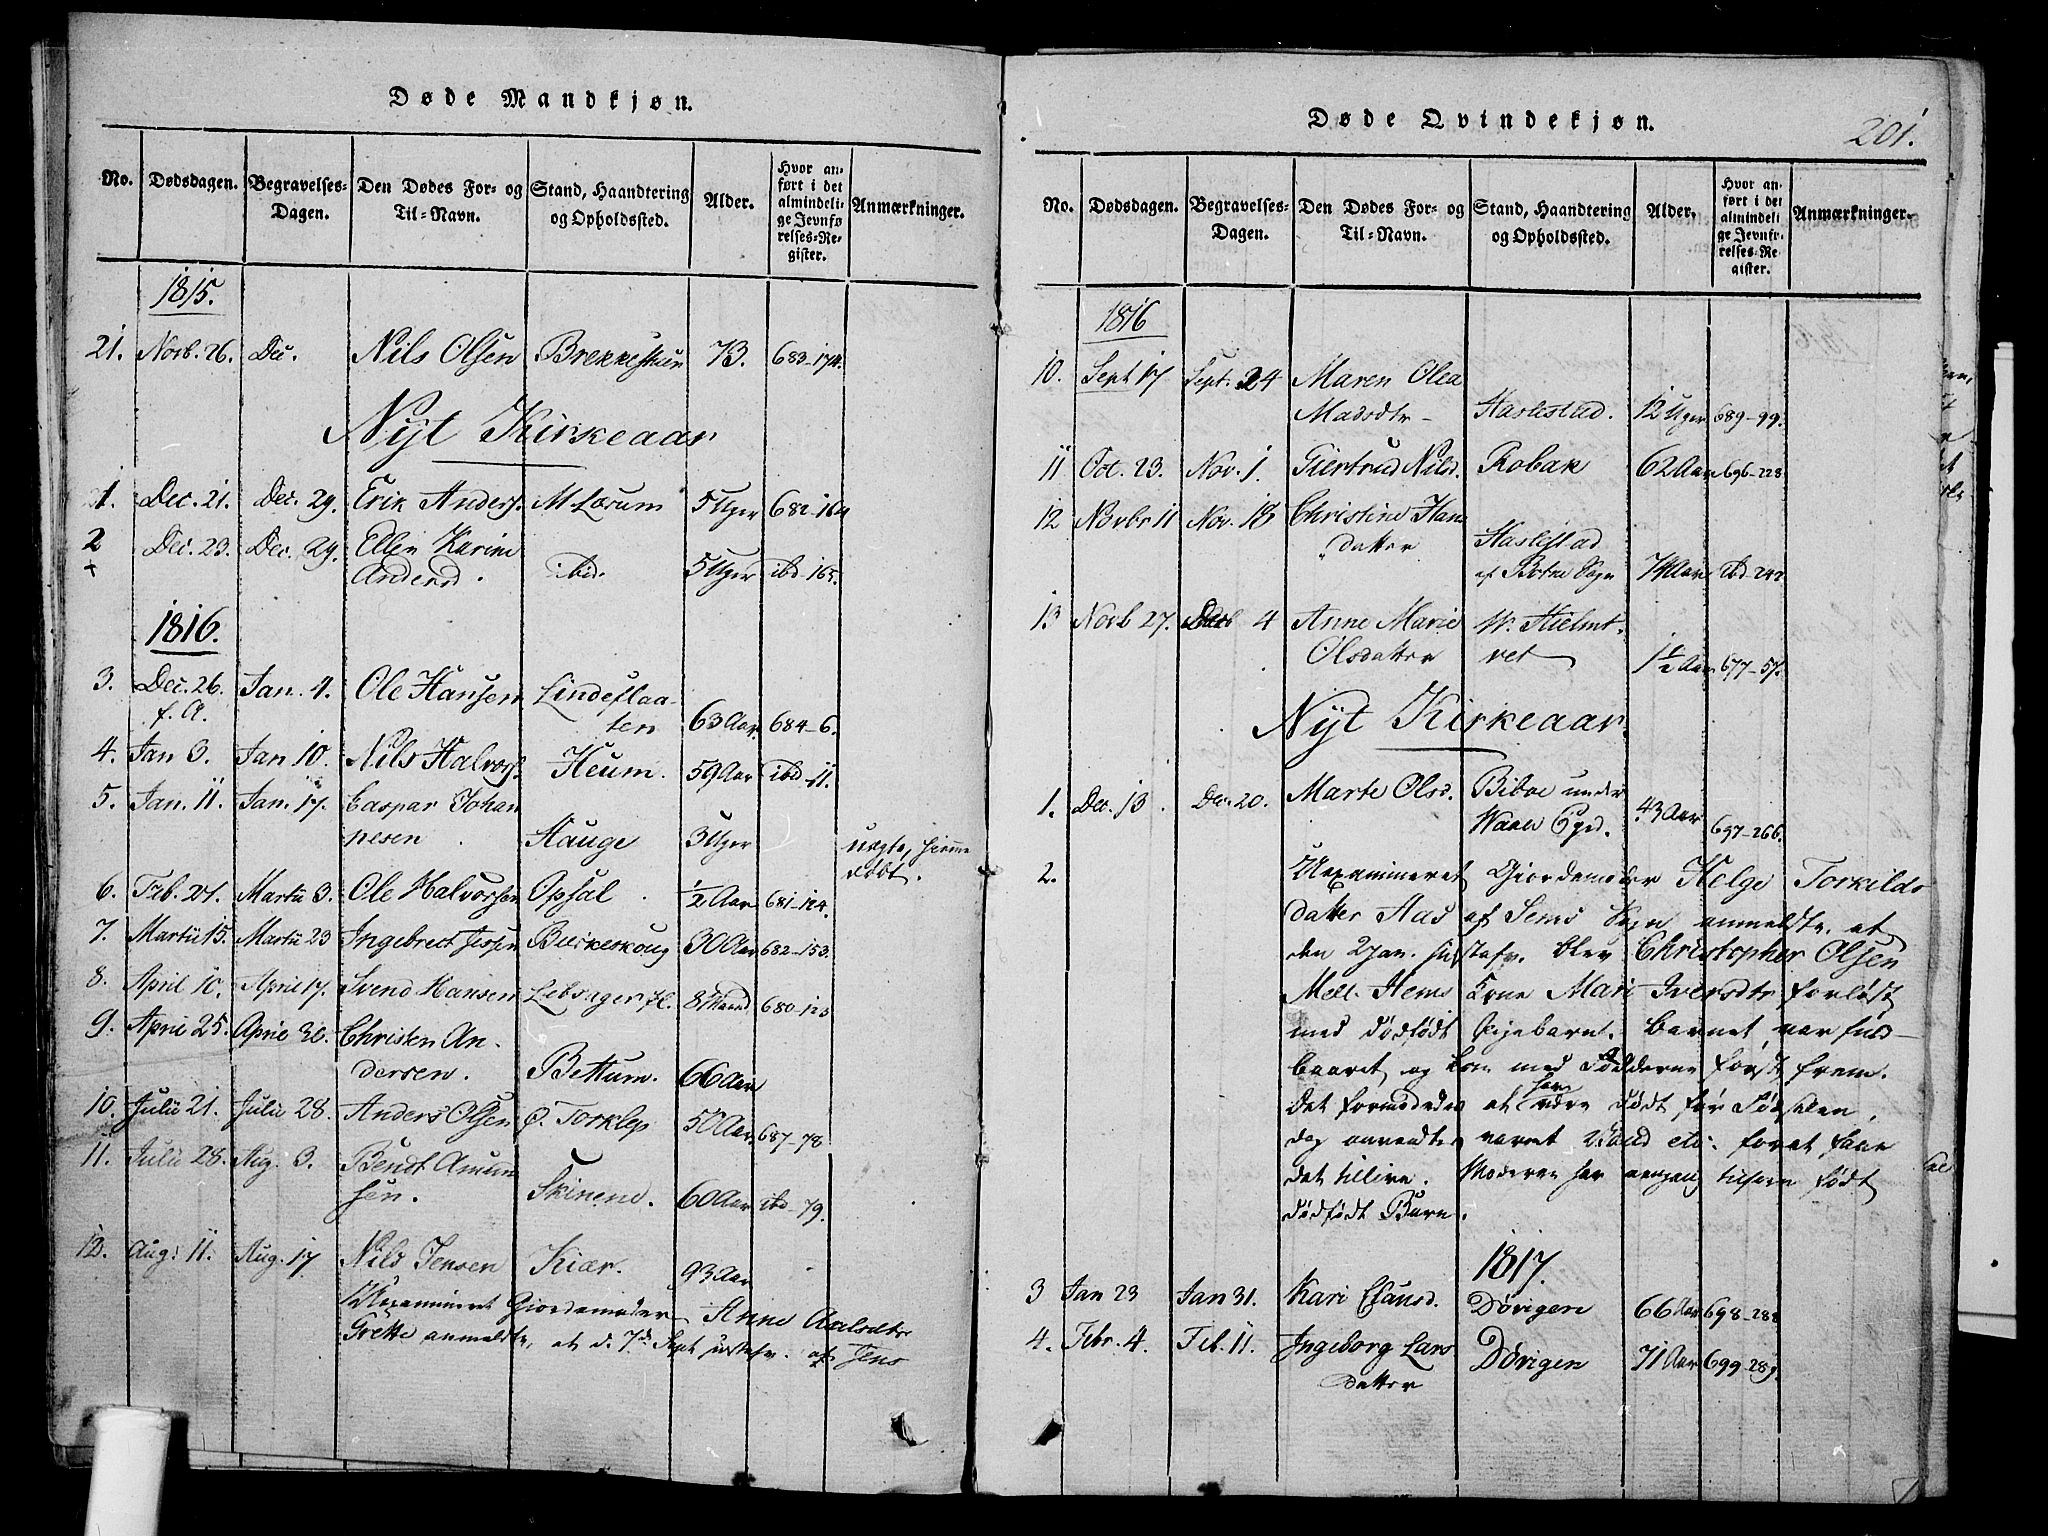 Døde Mandkjøn.
No. Dødsdagen. Begravelses-Dagen. Den Dødes For- og Til-Navn. Stand, Haandtering og Opholdssted. Alder. Hvor anført i det almindelige Jevnførelses-Register. Anmærkninger.
1815.
21. Novb. 26. Dec. Nils Olsen 73. 683-174.
Nyt Kirkeaar
1. Dec. 21. Dec. 29. Erik Anders. M Lørum 5 Uger 682-164
2 Dec. 23. Dec. 29. Ellen Karine
Andersd. ibid. 5 Uger ibd-165.
1816.
3. Dec. 26. Jan. 4. Ole Hansen Lindeflaa-
f. A. ten 63 Aar 684-6.
4. Jan 3. Jan 10. Nils Halvors. Heum. 59 Aar ibd-11.
5. Jan. 11. Jan. 17. Caspar Johan
nesen Hauge 3 Uger uægte, hiemme
døbt.
6. Feb. 27. Martii 3. Ole Halvorsen Opsal ½ Aar 681-124.
7. Martii 15. Martii 23 Ingebret 30 Aar 682-153.
8. April 10. April 17. Svend Hansen 8 Maand 680-123
9. April 25. April 30. Christen An-
dersen. Bettum. 66 Aar
10. Julii 21. Julii 28. Anders Olsen Ø. Torklep 50 Aar. 687-78
11. Julii 28. Aug. 3. Bendt Amun
sen. Skinene. 60 Aar ibd-79.
12. Aug: 11. Aug. 17 Nils Jensen Kiær. 93 Aar
Uexamineret Giordemoder Anne
Grette anmeldte, at d. 7de Sept af Jens
Døde Qvindekjøn.
201.
No. Dødsdagen. Begravelses-Dagen. Den Dødes For- og Til-Navn. Stand, Haandtering og Opholdssted. Alder. Hvor anført i det almindelige Jevnførelses-Register. Anmærkninger.
1816
10. Sept 17 Sept. 24 Maren Olea
Madsdtr Haslestad. 12 Uger 689-99.
11 Oct. 23. Nov. 1. Giertrud Nilsd. Robak 62 Aar 696-228
12 Novbr 11 Nov. 18 Christine Han
datter Haslestad
af Botne Sogn 74 Aar ibd-242
13 Novb 27. 4 Anne Marie W. Hielmt-
Olsdatter vet 1½ Aar 677-57.
Nyt Kirkeaar.
1. Dec. 13. Dec. 20. Marte Olsd. Biboe under
43 Aar 697-266.
2. Uexamineret Giordemoder Helge Torkilds
datter Aas af Sems Sogn anmeldte, at
den 2 Jan. blev Christopher Olsen
Mell. Hems Kone Mari Iversdtr forløst
med dødfødt Pigebarn. Barnet var fuld-
baaret, og kom med Fødderne først frem.
Det formodedes at være dødt før Fødselen,
dog anvendtes varmt Vand etc: for at faae
det tillive. Moderen har engang tilforn født
dødfødt Barn.
1817.
3 Jan 23 Jan 31. Kari Clausd. Dørigen 66 Aar 698-288
4. Febr. 4. Feb. 11. Ingeborg Lars
datter Dørigen 71 Aar 699-289.